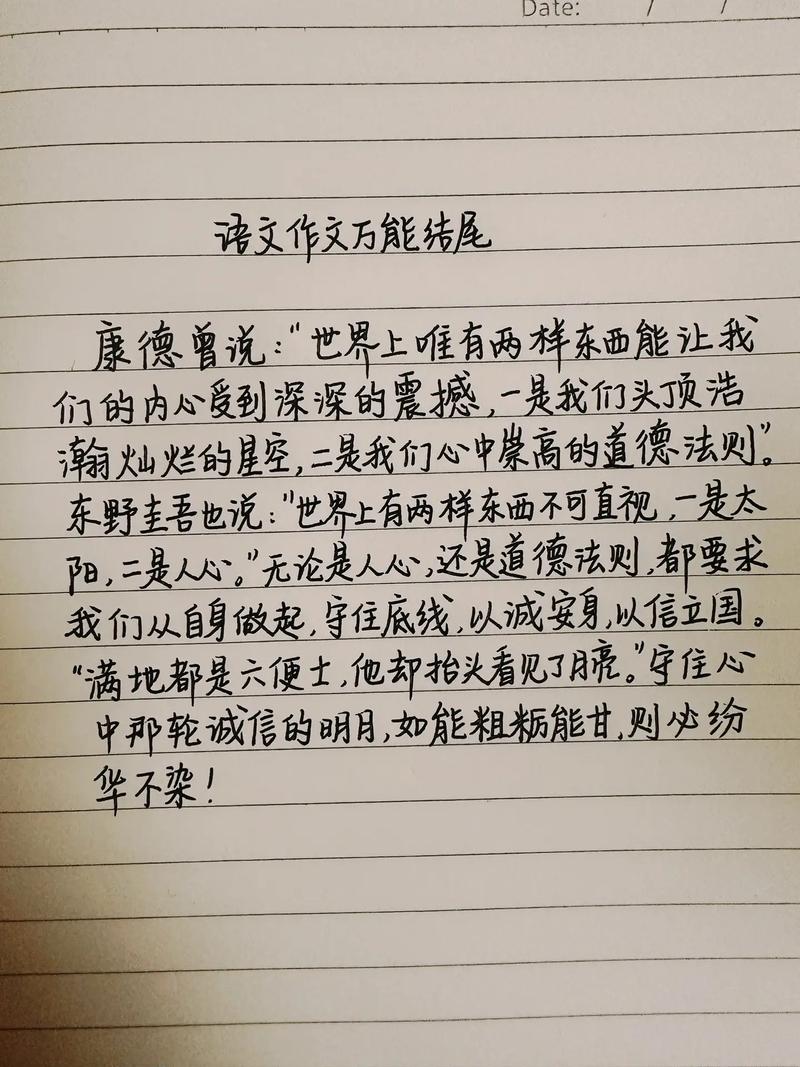 Date: / /
语文作文万能结尾
康德曾说："世界上唯有两样东西能让我
们的内心受到深深的震撼，一是我们头顶浩
瀚灿烂的星空，二是我们心中崇高的道德法则"。
东野圭吾也说："世界上有两样东西不可直视，一是太
阳，二是人心。"无论是人心，还是道德法则，都要求
我们从自身做起，守住底线，以诚安身，以信立国。
"满地都是六便士，他却抬头看见了月亮。"守住心
中那轮诚信的明月，如能粗粝能甘，则必纷
华不染！